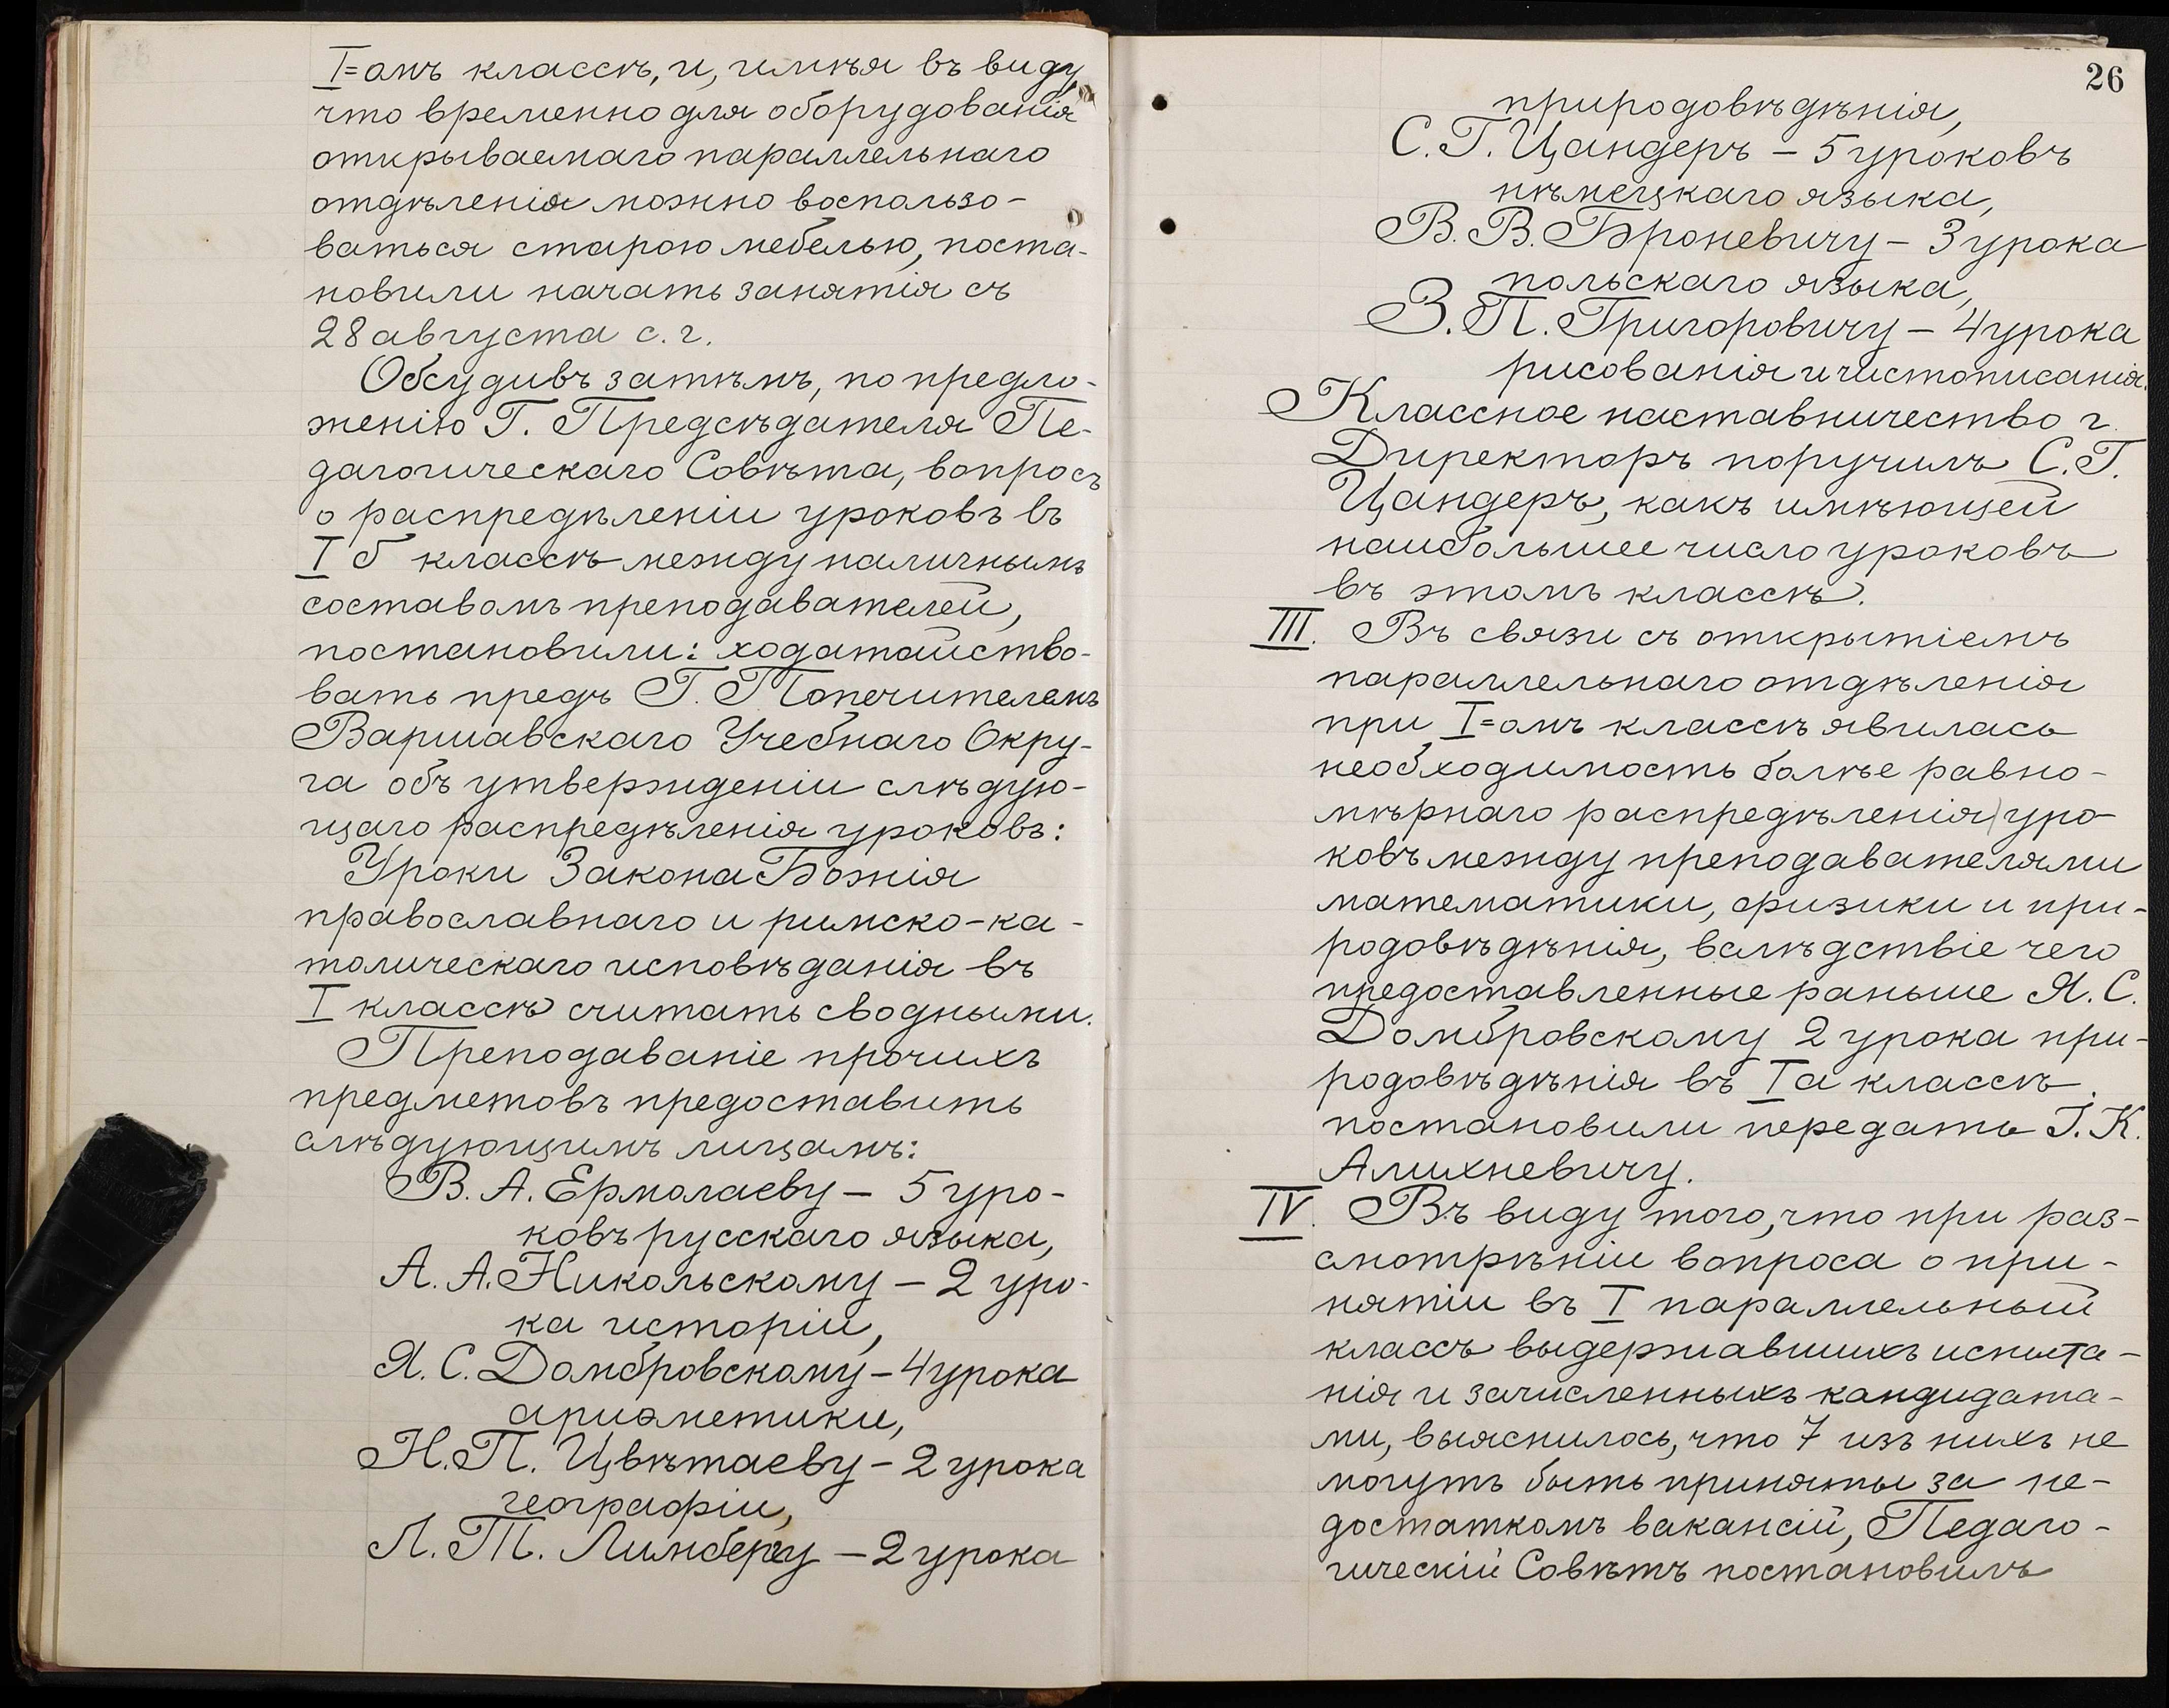 I=омъ классѣ, и, имѣя въ виду,
что временно для оборудованія
открываемаго параллельнаго
отдѣленія можно воспользо-
ваться старою мебелью, поста-
новили начать занятія съ
28 августа с. г.
Обсудивъ затѣмъ, по предло-
женію Г. Предсѣдателя Пе-
дагогическаго Совѣта, вопросъ
о распредѣленіи уроковъ въ
I б классѣ между наличнымъ
составомъ преподавателей,
постановили: ходатайство-
вать предъ Г. Попечителемъ
Варшавскаго Учебнаго Окру-
га объ утвержденіи слѣдую-
щаго распредѣленія уроковъ:
Уроки Закона Божія
православнаго и римско-ка-
толическаго исповѣданія въ
I классѣ считать сводными.
Преподаваніе прочихъ
предметовъ предоставить
слѣдующимъ лицамъ:
В. А. Ермолаеву – 5 уро-
ковъ русскаго языка,
А. А. Никольскому – 2 уро-
ка исторіи,
Я. С. Домбровскому – 4 урока
ариѳметики,
Н. П. Цвѣтаеву – 2 урока
географіи,
Л. Т. Лимбергу – 2 урока
26
природовѣдѣнія,
С. Г. Цандеръ – 5 уроковъ
нѣмецкаго языка,
В. В. Броневичу – 3 урока
польскаго языка,
З. П. Григоровичу – 4 урока
рисованія и чистописанія.
Классное наставничество г.
Директоръ поручилъ С. Г.
Цандеръ, какъ имѣющей
наибольшее число уроковъ
въ этомъ классѣ.
III. Въ связи съ открытіемъ
параллельнаго отдѣленія
при I=омъ классѣ явилась
необходимость болѣе равно-
мѣрнаго распредѣленія уро-
ковъ между преподавателями
математики, физики и при-
родовѣдѣнія, вслѣдствіе чего
предоставленные раньше Я. С.
Домбровскому 2 урока при-
родовѣдѣнія въ Iа классѣ
постановили передать І. К.
Алихневичу.
IV. Въ виду того, что при раз-
смотрѣніи вопроса о при-
нятіи въ I параллельный
классъ выдержавшихъ испыта-
нія и зачисленныхъ кандидата-
ми, выяснилось, что 7 изъ нихъ не
могутъ быть приняты за не-
достаткомъ вакансій, Педаго-
гическій Совѣтъ постановилъ